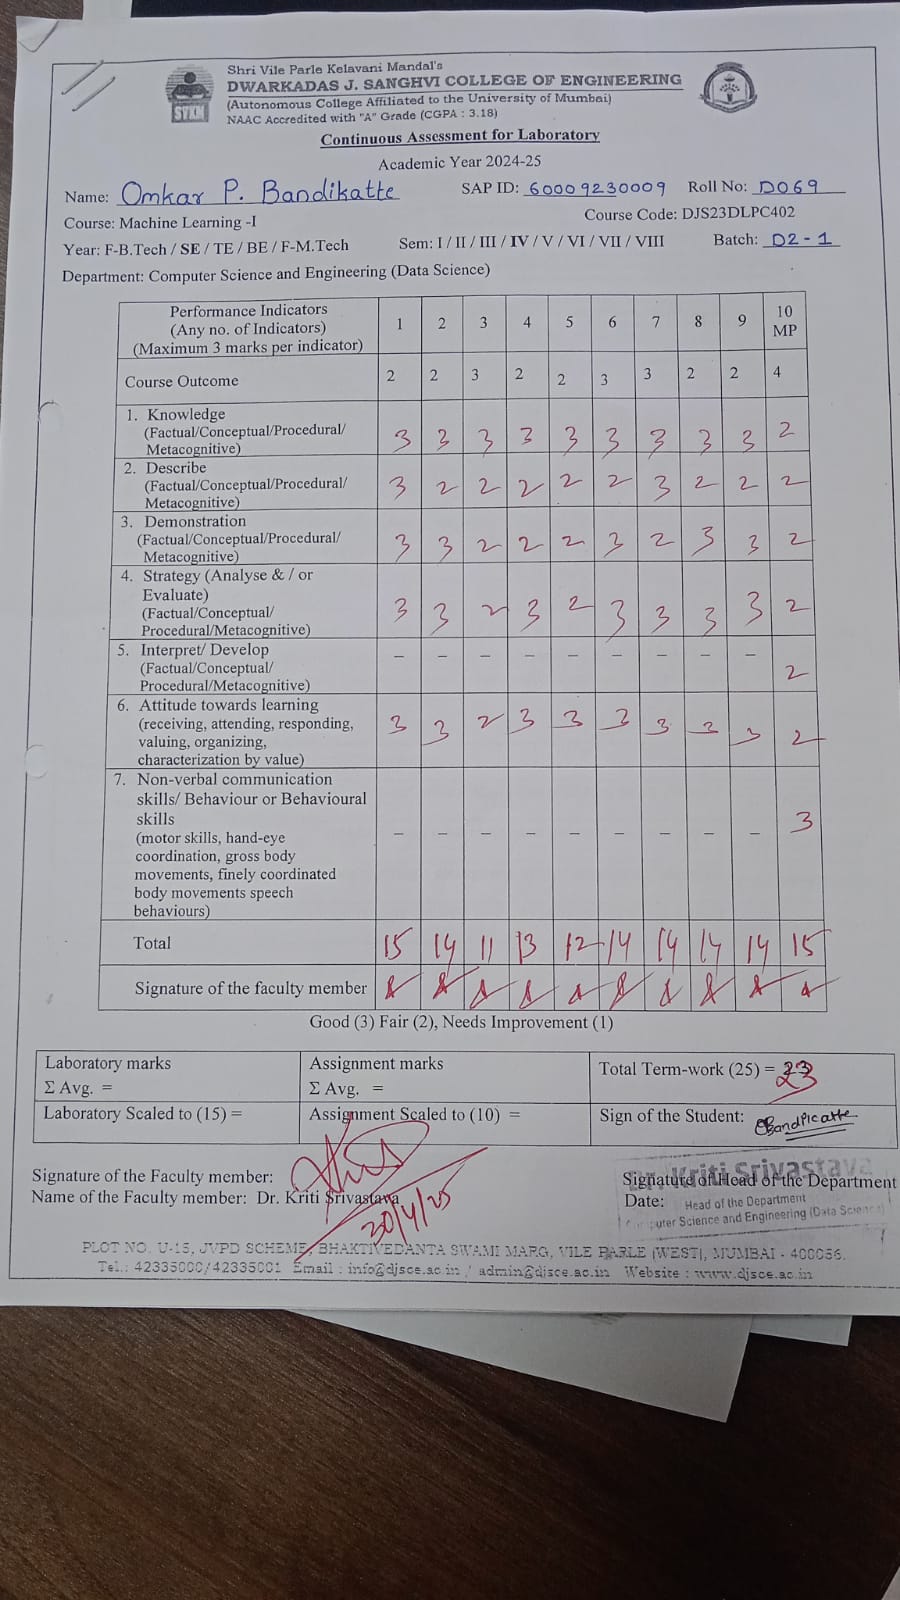 Shri Vile Parle Kelavani Mandal's
DWARKADAS J. SANGHVI COLLEGE OF ENGINEERING
(Autonomous College Affiliated to the University of Mumbai)
NAAC Accredited with "A" Grade (CGPA : 3.18)
SVKM
Continuous Assessment for Laboratory
Academic Year 2024-25
Name: Omkar P. Bandikatte SAP ID: 60009230009 Roll No: D069
Course: Machine Learning -I Course Code: DJS23DLPC402
Year: F-B.Tech / SE / TE / BE / F-M.Tech Sem: I / II / III / IV / V / VI / VII / VIII Batch: D2-1
Department: Computer Science and Engineering (Data Science)
Performance Indicators
(Any no. of Indicators)
(Maximum 3 marks per indicator) 1 2 3 4 5 6 7 8 9 10 MP
Course Outcome 2 2 3 2 2 3 3 2 2 4
1. Knowledge
(Factual/Conceptual/Procedural/
Metacognitive) 3 3 3 3 3 3 3 3 3 2
2. Describe
(Factual/Conceptual/Procedural/
Metacognitive) 3 2 2 2 2 2 3 2 2 2
3. Demonstration
(Factual/Conceptual/Procedural/
Metacognitive) 3 3 2 2 2 3 2 3 3 2
4. Strategy (Analyse & / or
Evaluate)
(Factual/Conceptual/
Procedural/Metacognitive) 3 3 2 3 2 3 3 3 3 2
5. Interpret/ Develop
(Factual/Conceptual/
Procedural/Metacognitive) – – – – – – – – – 2
6. Attitude towards learning
(receiving, attending, responding,
valuing, organizing,
characterization by value) 3 3 2 3 3 3 3 3 3 2
7. Non-verbal communication
skills/ Behaviour or Behavioural
skills
(motor skills, hand-eye
coordination, gross body
movements, finely coordinated
body movements speech
behaviours) – – – – – – – – – 3
Total 15 14 11 13 12 14 14 14 14 15
Signature of the faculty member
Good (3) Fair (2), Needs Improvement (1)
Laboratory marks Assignment marks Total Term-work (25) = 23
Σ Avg. = Σ Avg. =
Laboratory Scaled to (15) = Assignment Scaled to (10) = Sign of the Student: OBandikatte
Signature of the Faculty member: Signature of Head of the Department
Name of the Faculty member: Dr. Kriti Srivastava Date:
30/4/25
Dr. Kriti Srivastava
Head of the Department
Computer Science and Engineering (Data Science)
PLOT NO. U-15, JVPD SCHEME, BHAKTIVEDANTA SWAMI MARG, VILE PARLE (WEST), MUMBAI - 400056.
Tel.: 42335000/42335001 Email : info@djsce.ac.in / admin@djsce.ac.in Website : www.djsce.ac.in